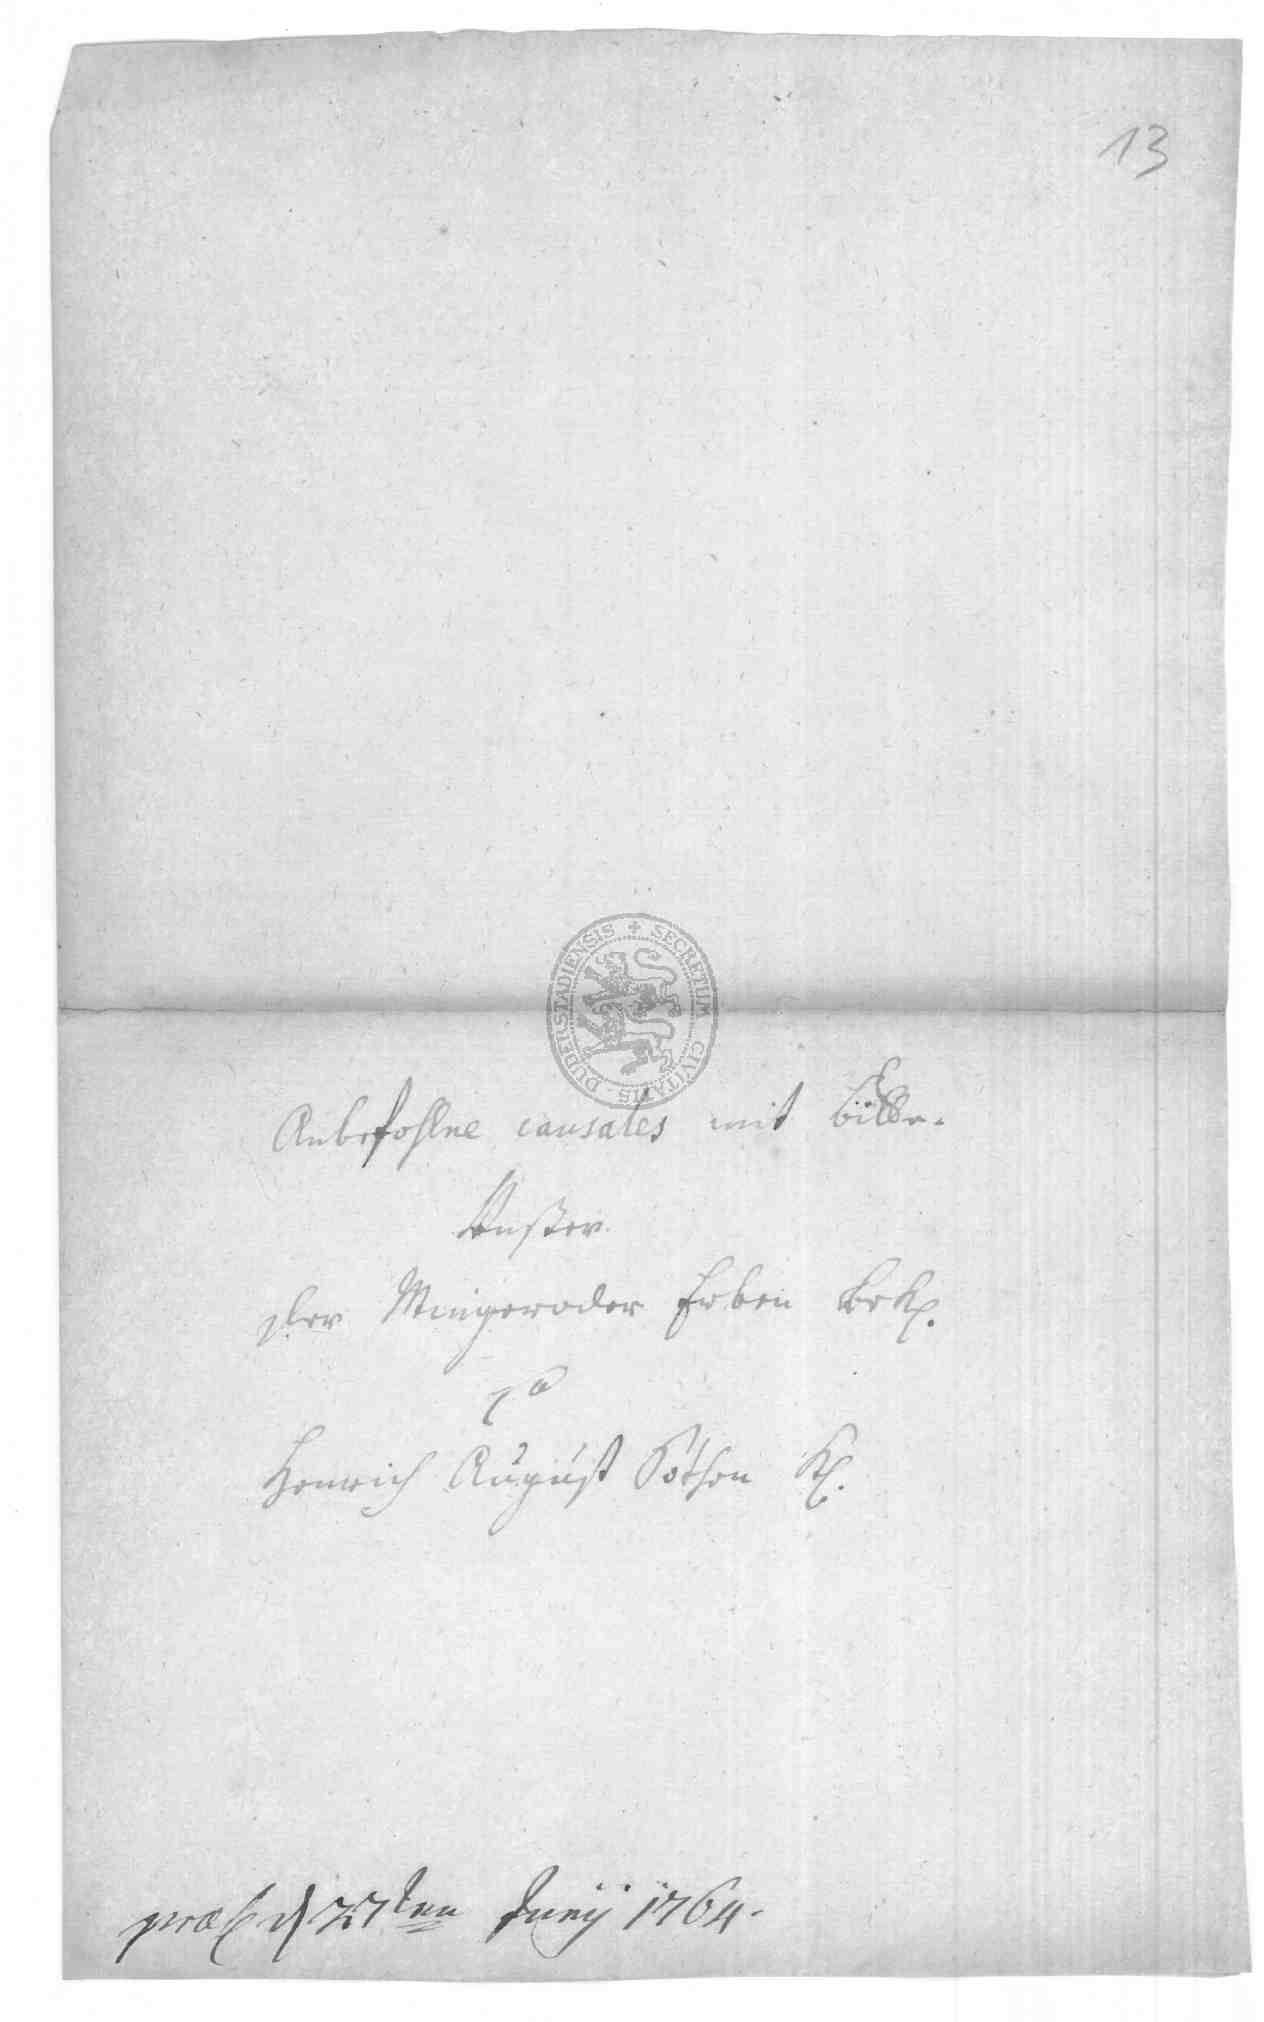 13
SECRETUM CIVITATIS DUDERSTADIENSIS
Anbefohlne causales mit bitte.
Unßer
der Mingeroder Erben Bekl.
ca
Henrich August Köthen Kl.
præs. d 27ten Junij 1764.